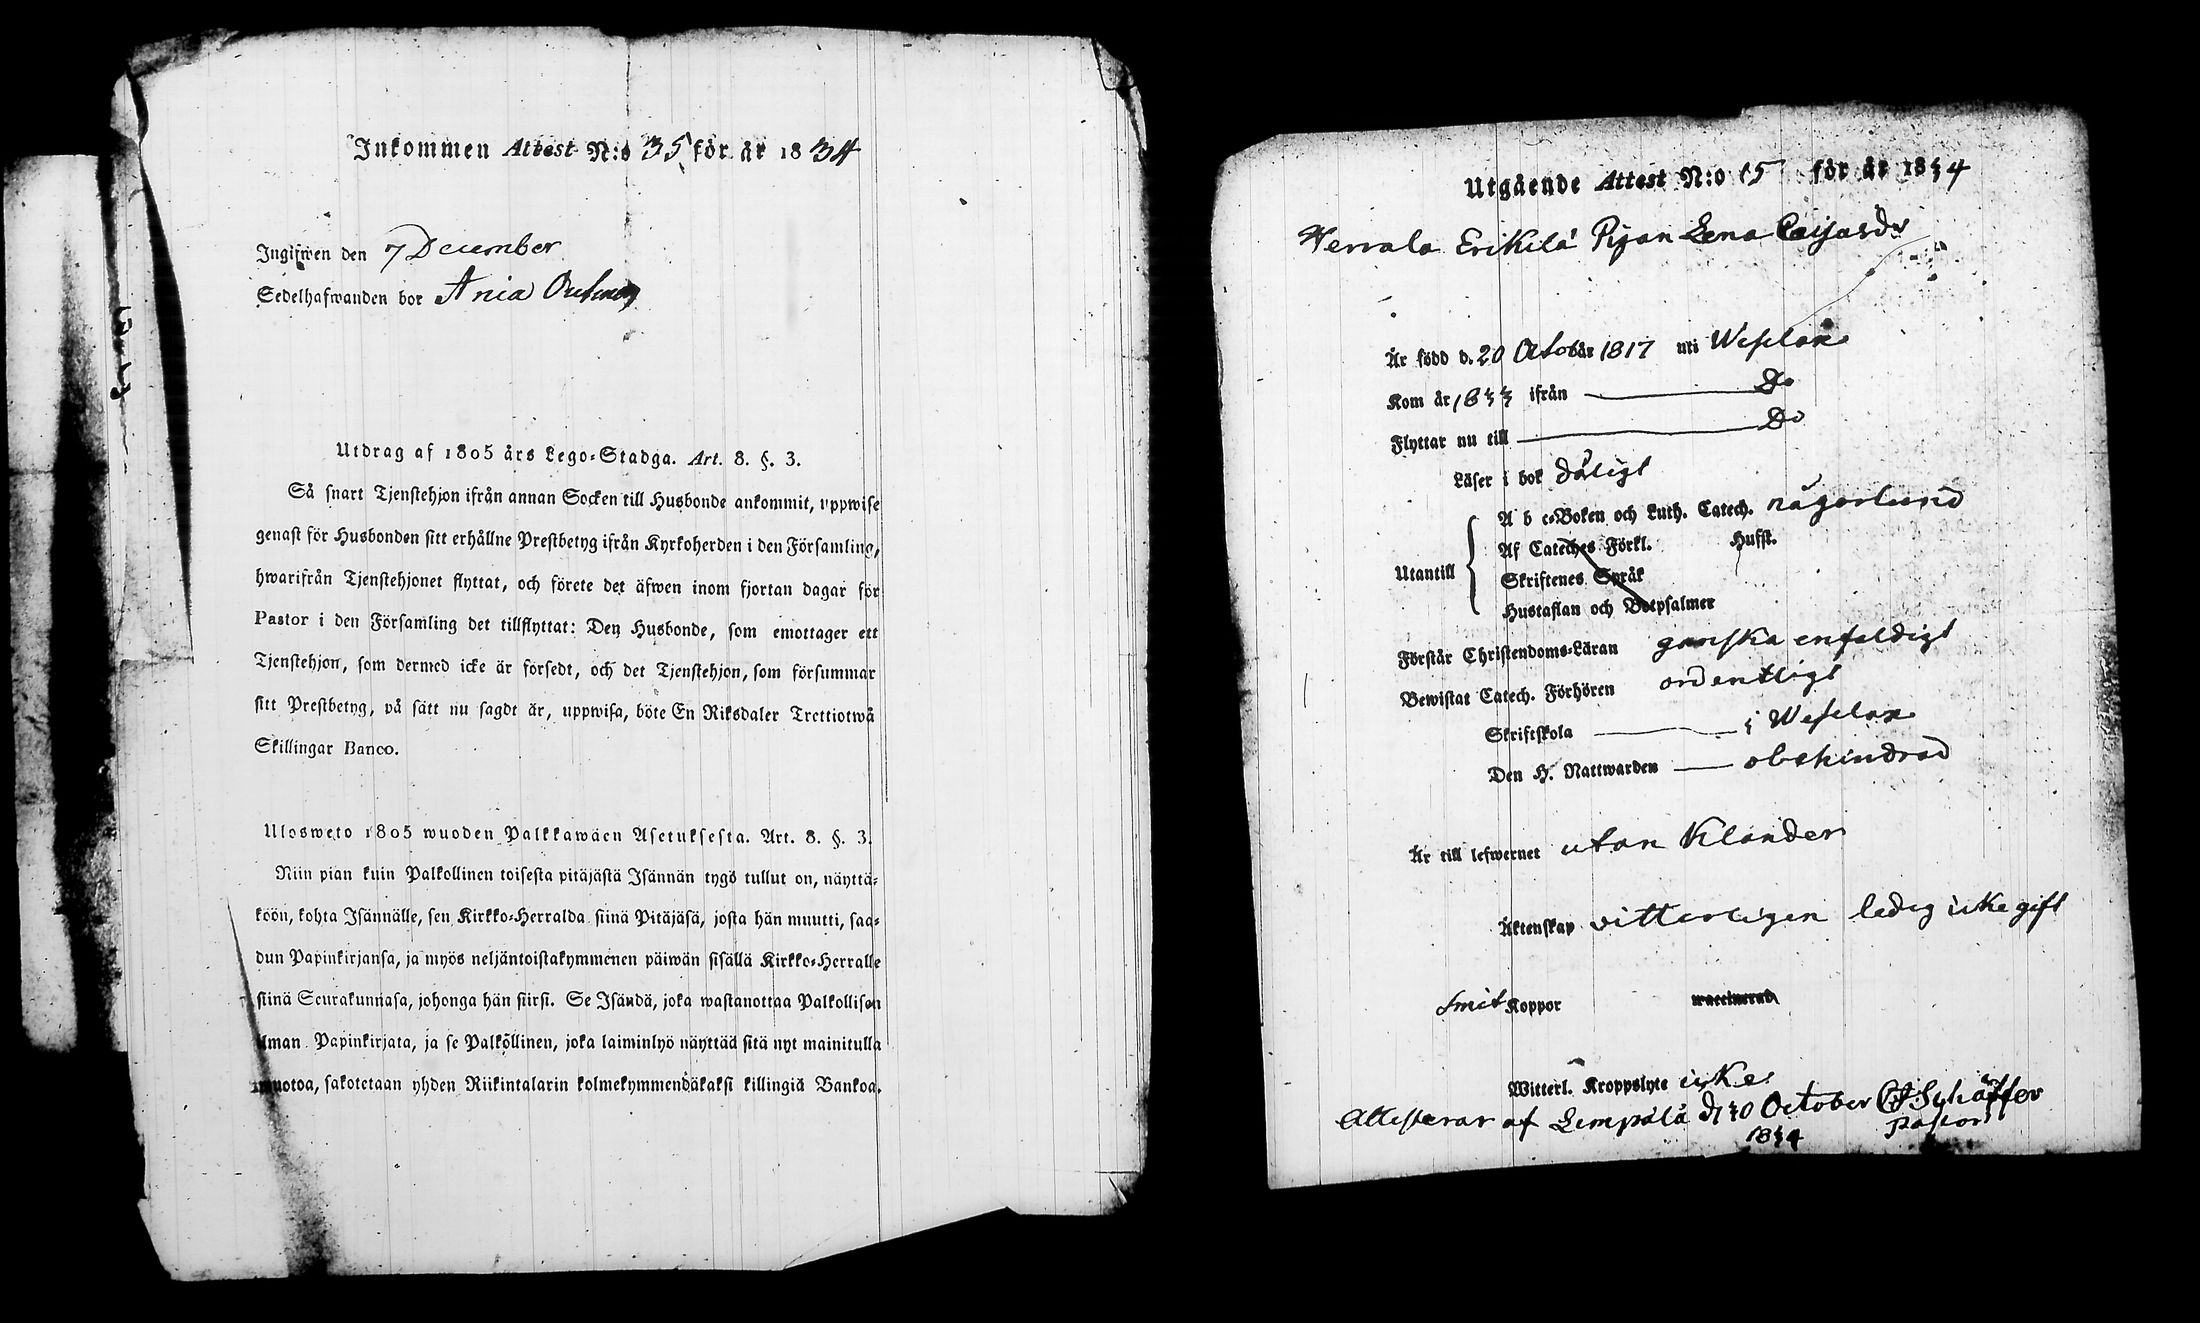 Inkommen Attest N:o 35 för år 1834
Ingifwen den 7 December
Sedelhafwanden bor Ania
Utdrag af 1805 års Lego-Stadga. Art. 8. §. 3.
Så snart Tjenstehjon ifrån annan Socken till Husbonde ankommit, uppwise
genast för Husbonden sitt erhållne Prestbetyg ifrån Kyrkoherden i den Församling,
hwarifrån Tjenstehjonet flyttat, och förete det äfwen inom fjortan dagar för
Pastor i den Församling det tillflyttat: Den Husbonde, som emottager ett
Tjenstehjon, som dermed icke är försedt, och det Tjenstehjon, som försummar
sitt Prestbetyg, på sätt nu sagdt är, uppwisa, böte En Riksdaler Trettiotwå
Skillingar Banco.
Ulosweto 1805 wuoden Palkkawäen Asetuksesta. Art. 8. §. 3.
Niin pian kuin Palkollinen toisesta pitäjästä Isännän tygö tullut on, näyttä-
köön, kohta Isännälle, sen Kirkko-Herralda siinä Pitäjäsä, josta hän muutti, saa-
dun Papinkirjansa, ja myös neljäntoistakymmenen päiwän sisällä Kirkko-Herralle
siinä Seurakunnasa, johonga hän siirsi. Se Isändä, joka wastanottaa Palkollisen
ilman Papinkirjata, ja se Palkollinen, joka laiminlyö näyttää sitä nyt mainitulla
muotoa, sakotetaan yhden Riikintalarin kolmekymmendäkaksi killingiä Bankoa.
Utgående Attest N:o 15 för år 1834
Herrala Erikilä Pigan Lena Caisasdr
Är född d. 20 Octobär 1817 uti Wesilax
Kom år 1833 ifrån Do
Flyttar nu till Do
Läser i bok dåligt
Utantill
A b c-Boken och Luth. Catech. någorlund
Af Cateches Förkl. Hufst.
Skriftenes Språk
Hustaflan och Botpsalmer
Förstår Christendoms-Läran ganska enfaldigt
Bewistat Catech. Förhören ordentligt
Skriftskola i Wesilax
Den H. Nattwarden obehindrad
Är till lefwernet utan klander
Äktenskap vitterligen ledig icke gift
Smit Koppor waccinerad
Witterl. Kroppslyte icke
Attesterar af Lempälä d 30 October Schäffer
1834 Pastor